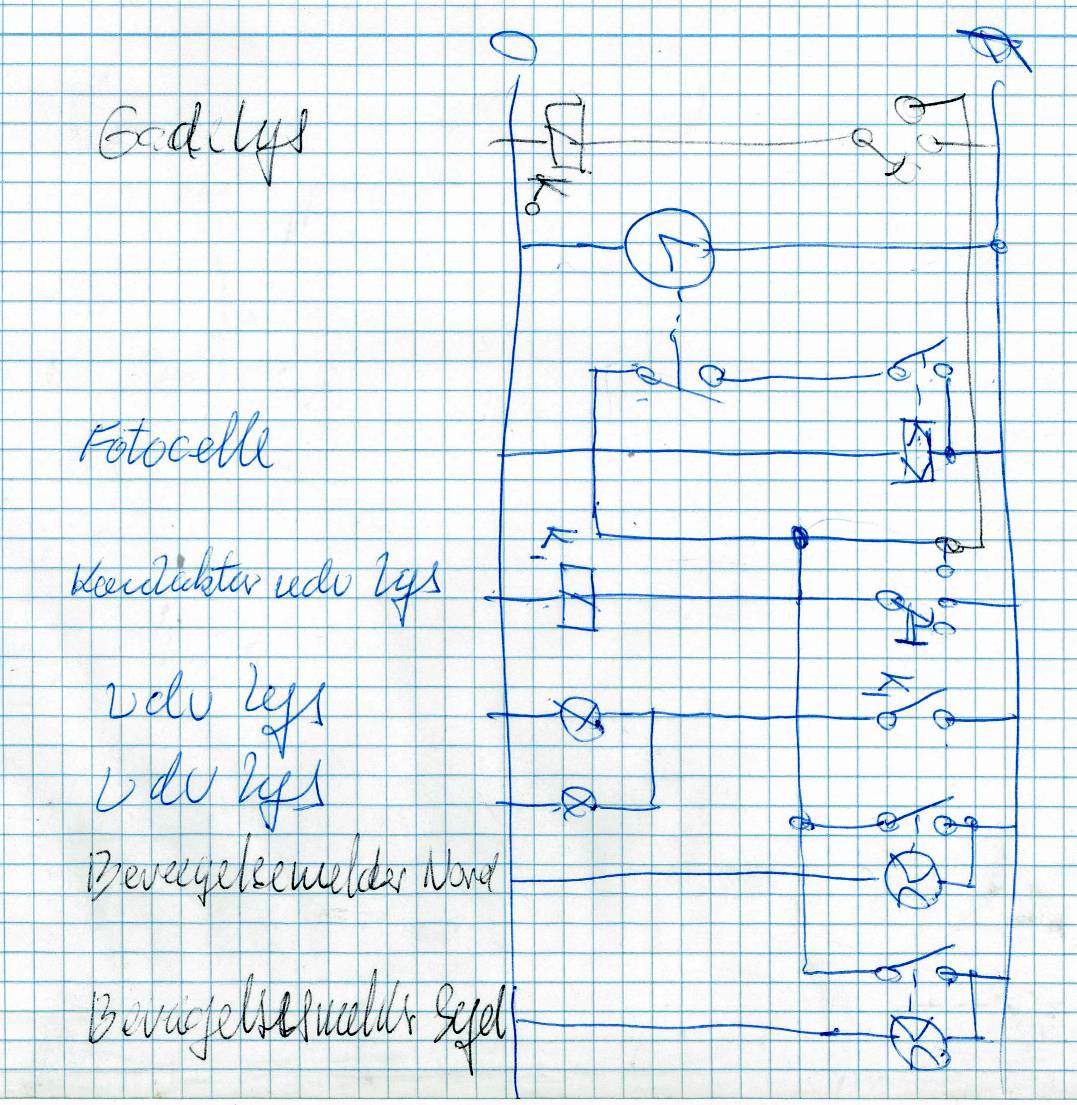 0
Gadelys
K0
Fotocelle
K1
Kontaktor udv lys
K1
Udv lys
Udv lys
Bevægelsemelder Nord
Bevægelsesmelder Syd